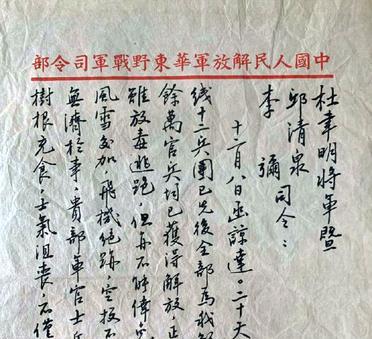 中國人民解放軍華東野戰軍司令部
杜聿明將軍暨
邱清泉
李彌司令：
十二月八日函諒達。二十天
线十二兵團已先後全部為我
餘萬官兵均已獲得解放，正
雖放毒逃跑，但
風雪交加，飛機絕跡，空投不
無濟於事，貴部軍官士兵
樹根充食，士氣沮喪，不僅